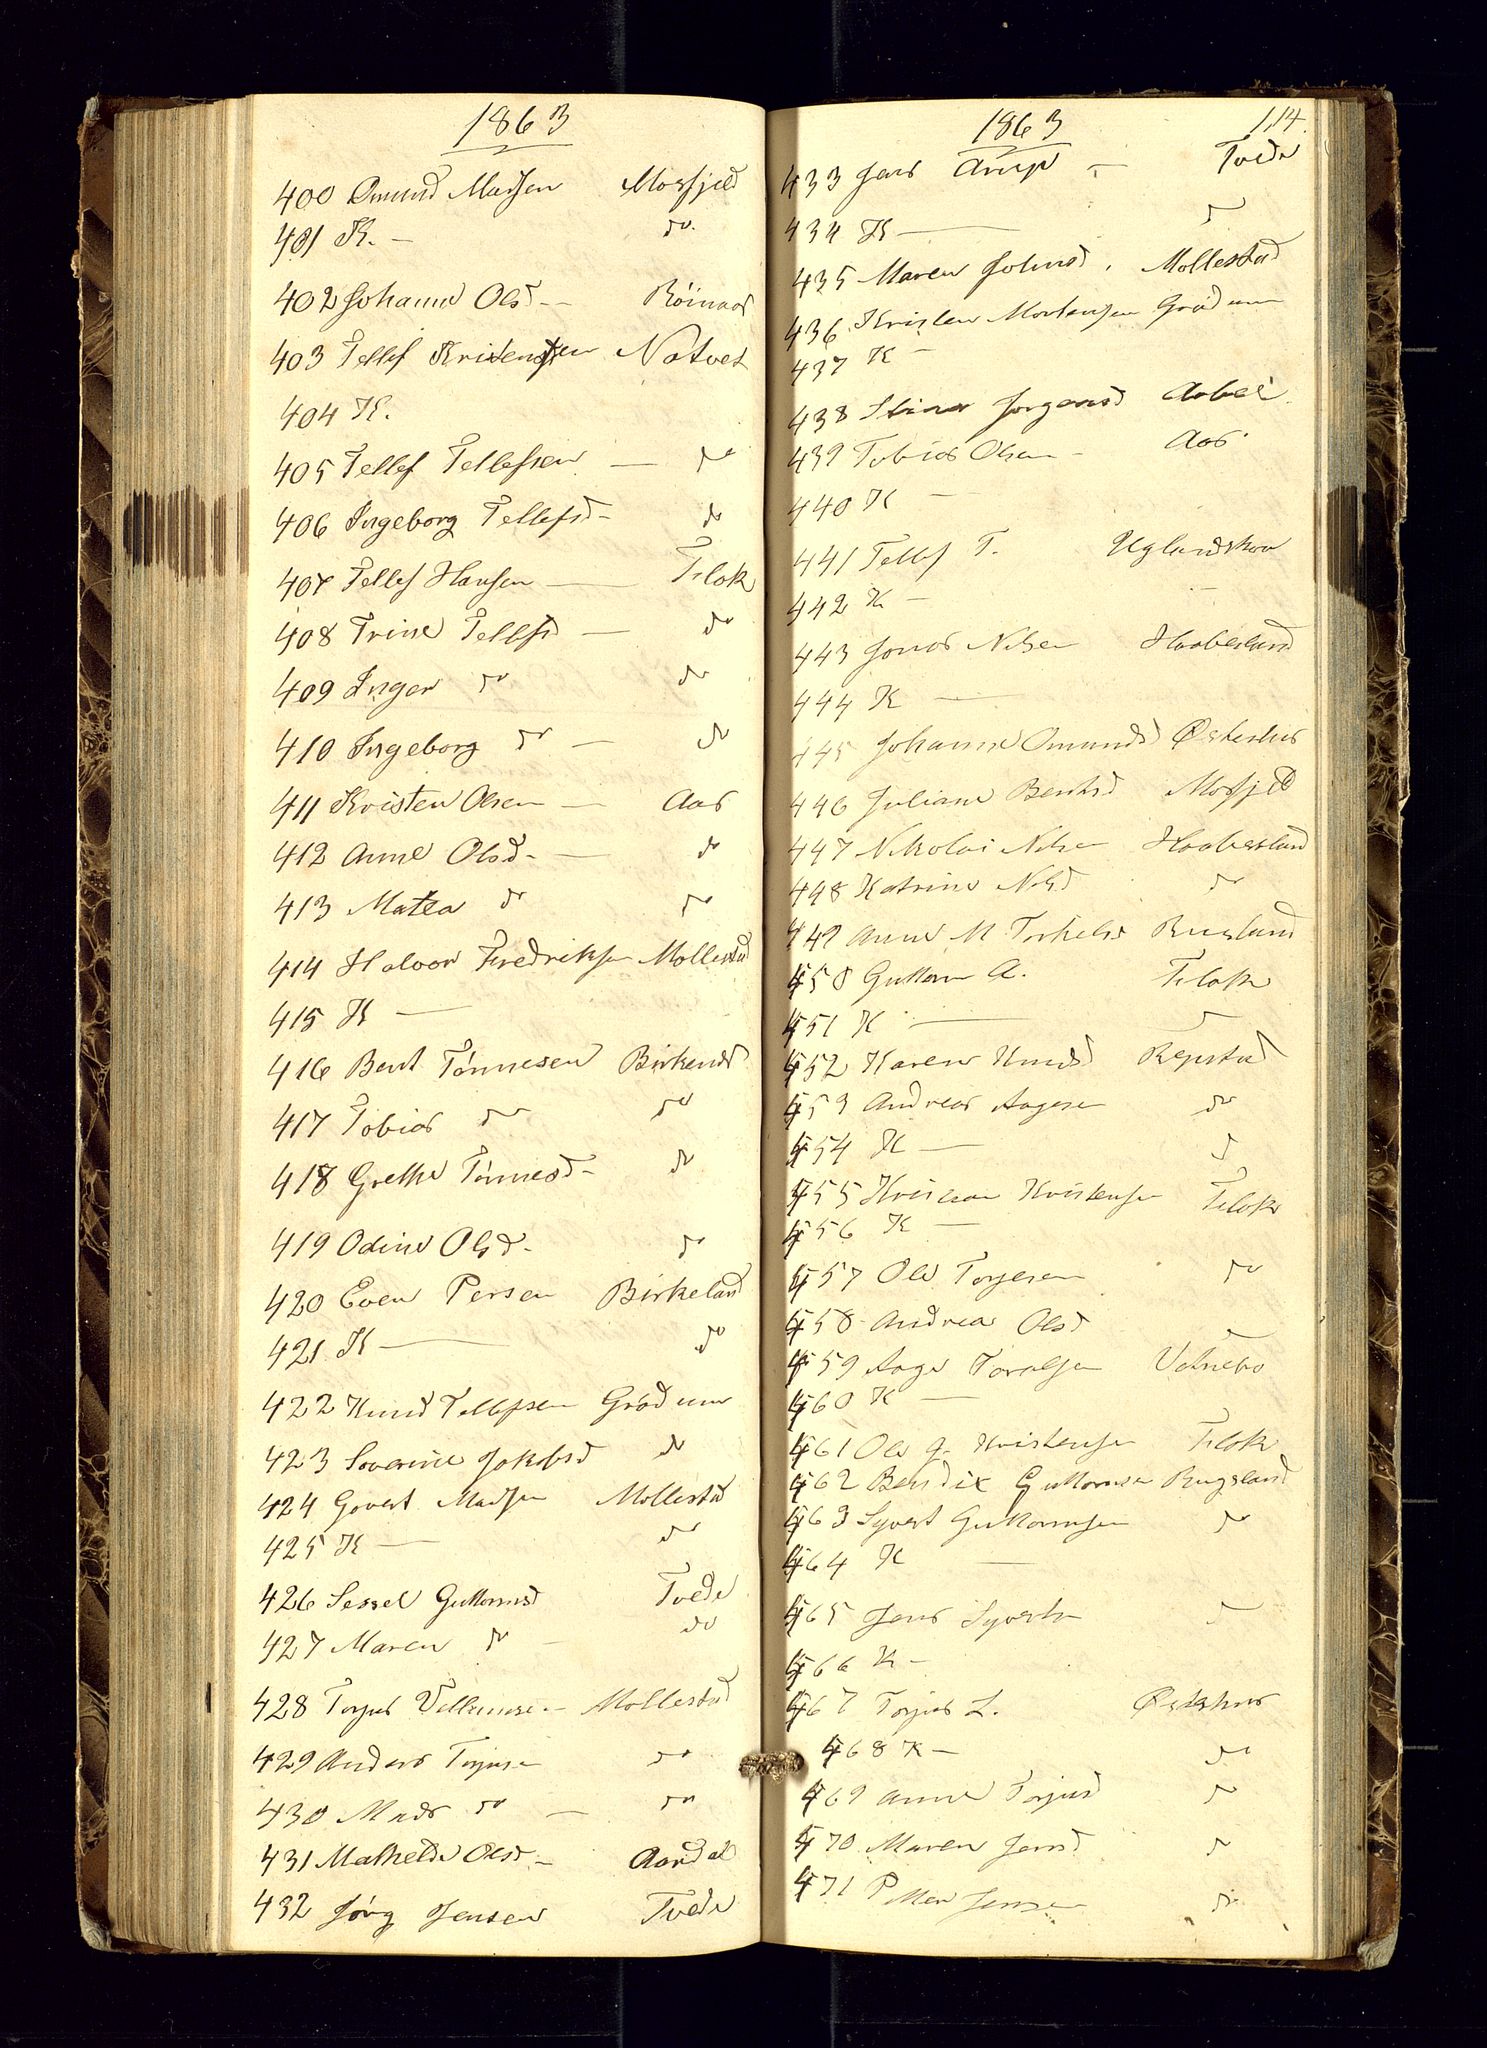 1863
400 Omund Madsen Mosfjeld
401 K. — do.
402 Johanne Olsd — Röinaas
403 Tellef Kristensen Natvet
404 K.
405 Tellef Tellefsen — do
406 Ingeborg Tellefsd — do
407 Tellef Hansen — Flak
408 Trine Tellefsd — do
409 Inger do do
410 Ingeborg do — do
411 Kristen Olsen — Aas
412 Anne Olsd. — do
413 Matea do do
414 Halvor Fredriksen Mollestad
415 K —
416 Bent Tønnesen Birkend
417 Tobias do do
418 Grethe Tønnesd — do
419 Odine Olsd. do
420 Even Persen Birkeland
421 K — do
422 Knud Tellefsen Grödum
423 Severine Jakobsd do
424 Govert Madsen Mollestad
425 K — do
426 Sessel Guttormsd Tvede
427 Maren do — do
428 Torjus Villumse. — Mollestad
429 Anders Torjusen do
430 Mads do — do
431 Mathelde Olsd — Aardal
432 Jörg Jensen Tvede
1863 114.
433 Jens — Tvede
434 K — do
435 Maren Johnsd. Mollestad
436 Kristen Mortensen Grödum
437 K —
438 Stine Jörgensd
439 Tobias Olsen — Aas.
440 K —
441 Tellef T. Uglandskaa
442 K —
443 Jonas Nilsen Haabesland
444 K —
445 Johanne Omunds Østerhus
446 Juliane Bentsd Mosfjeld
447 Nikolai Nilsen Haabesland
448 Katrine Nilsd do
449 Anne M Torkelsd Rugsland
450 Guttorm A. Flak
451 K — do
452 Karen Knudsd Repstad
453 Andreas Aagesen do
454 K — do
455 Kristian Kristensen Flak
456 K —
457 Ole Torjesen do
458 Andrea Olsd
459 Aage Toralfsen Vatnebo
460 K —
461 Ole J. Kristensen Flak
462 Bendix Guttormsen Rugsland
463 Syvert Guttormsen do
464 K —
465 Jens Syverts do
466 K —
467 Torjus L. Østerhus
468 K — do
469 Anne Torjusd do
470 Maren Jensd do
471 Jensen do